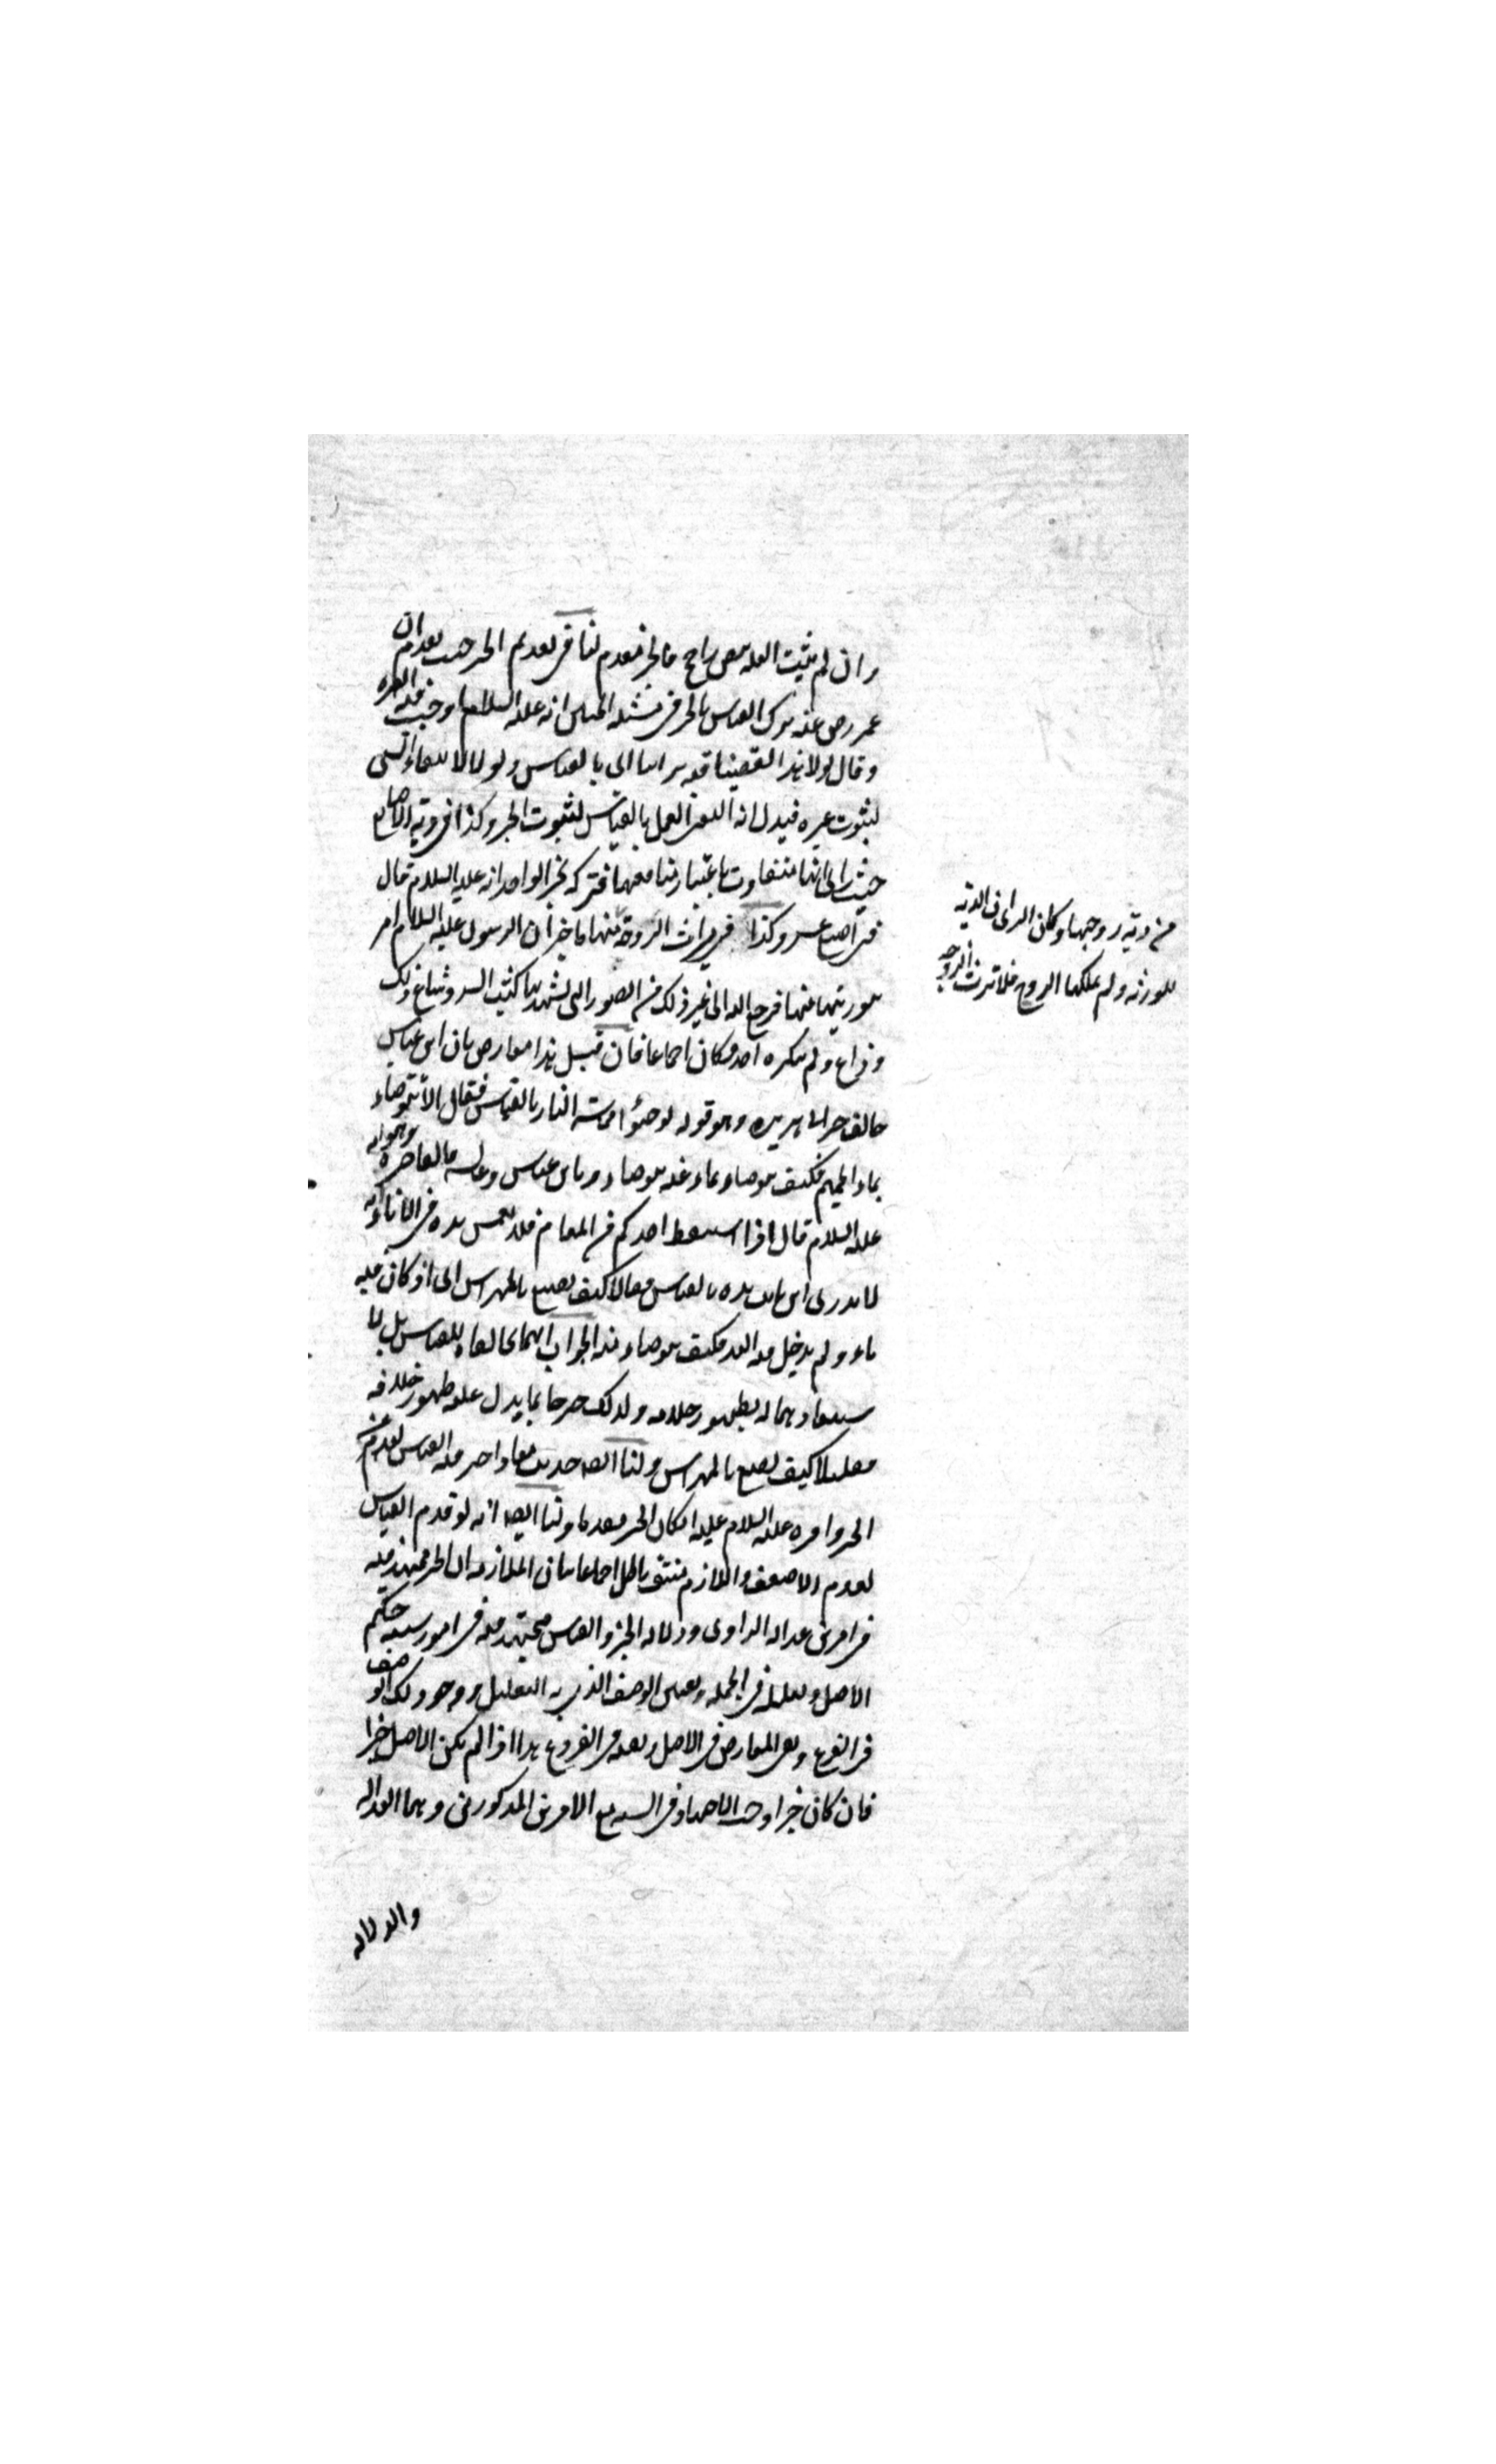 وان لم يثبت العلة بنص راجح فالخبر مقدم لنا في تقديم الخبر حيث يقدم ان
عمر رضي عنه ترك القياس بالخبر في مسئلة الجنين انه عليه السلام اوجب فيه الغره
وقال لولا هذا لقضينا فيه براينا اي بالقياس ولولا لانتفاء الشي
لثبوت غيره فيدل انه انتفى العمل بالقياس لثبوت الخبر وكذا في دية الاصابع
حيث راى انها متفاوت باعتبار منافعها فتركه بخبر الواحد انه عليه السلام قال
في كل اصبع عشر وكذا في ميراث الزوجة منها بما خبر ان الرسول عليه السلام امر
بتوريثها منها فرجع اليه الى غير ذلك من الصور التي يشهد بها كتب السير وشاع ذلك
وذاع ولم ينكره احد وكان اجماعا فان قيل هذا معارض بان ابن عباس
خالف خبر ابي هريره وهو قوله توضؤا مما مسته النار بالقياس فقال الا نتوضاء
بماء الحميم فكيف نتوضاء بماء عنه نتوضاء وبان ابن عباس وعايشه خالفا خبره وهو انه
عليه السلام قال اذا استيقظ احدكم من المنام فلا يغمس يده في الاناء فانه
لا يدري اين باتت يده بالقياس فقالا كيف نصنع بالمهراس اي اذا كان فيه
ماء ولم يدخل فيه اليد فكيف نتوضاء منه الجواب انهما ما خالفاه للقياس بل لا
ستبعادهما له بظهور خلافه ولذلك صرحا بما يدل على ظهور خلافه
فقالا كيف نصنع بالمهراس ولنا ايضا حديث معاذ اخر فيه القياس لعدم عن
الخبر وامره عليه السلام عليه فكان الخبر مقدما ولنا ايضا انه لو قدم القياس
لقدم الاضعف واللازم منتف باطل اجماعا بيان الملازمه ان الخبر مجتهد فيه
في امرين عدالة الراوي ودلاله الخبر والقياس مجتهد فيه في امور سته حكم
الاصل وتعليله في الجمله وتعيين الوصف الذي به التعليل ووجود ذلك الوصف
في الفرع ونفي المعارض في الاصل ونفيه في الفروع هذا اذا لم يكن الاصل خبرا
فان كان خبرا وجب الاجتهاد في السته مع الامرين المذكورين وهما العداله
والدلاله
من دية زوجها وكان الراي ان الدية
للورثه ولم يملكها الزوج فلا ترث الزوجه